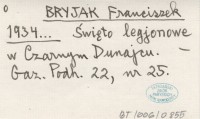 o
BRYJAK Franciszek
1934... Święto legjonowe
w Czarnym Dunajcu. —
Gaz. Podh. 22, nr 25.
BT/006/0855